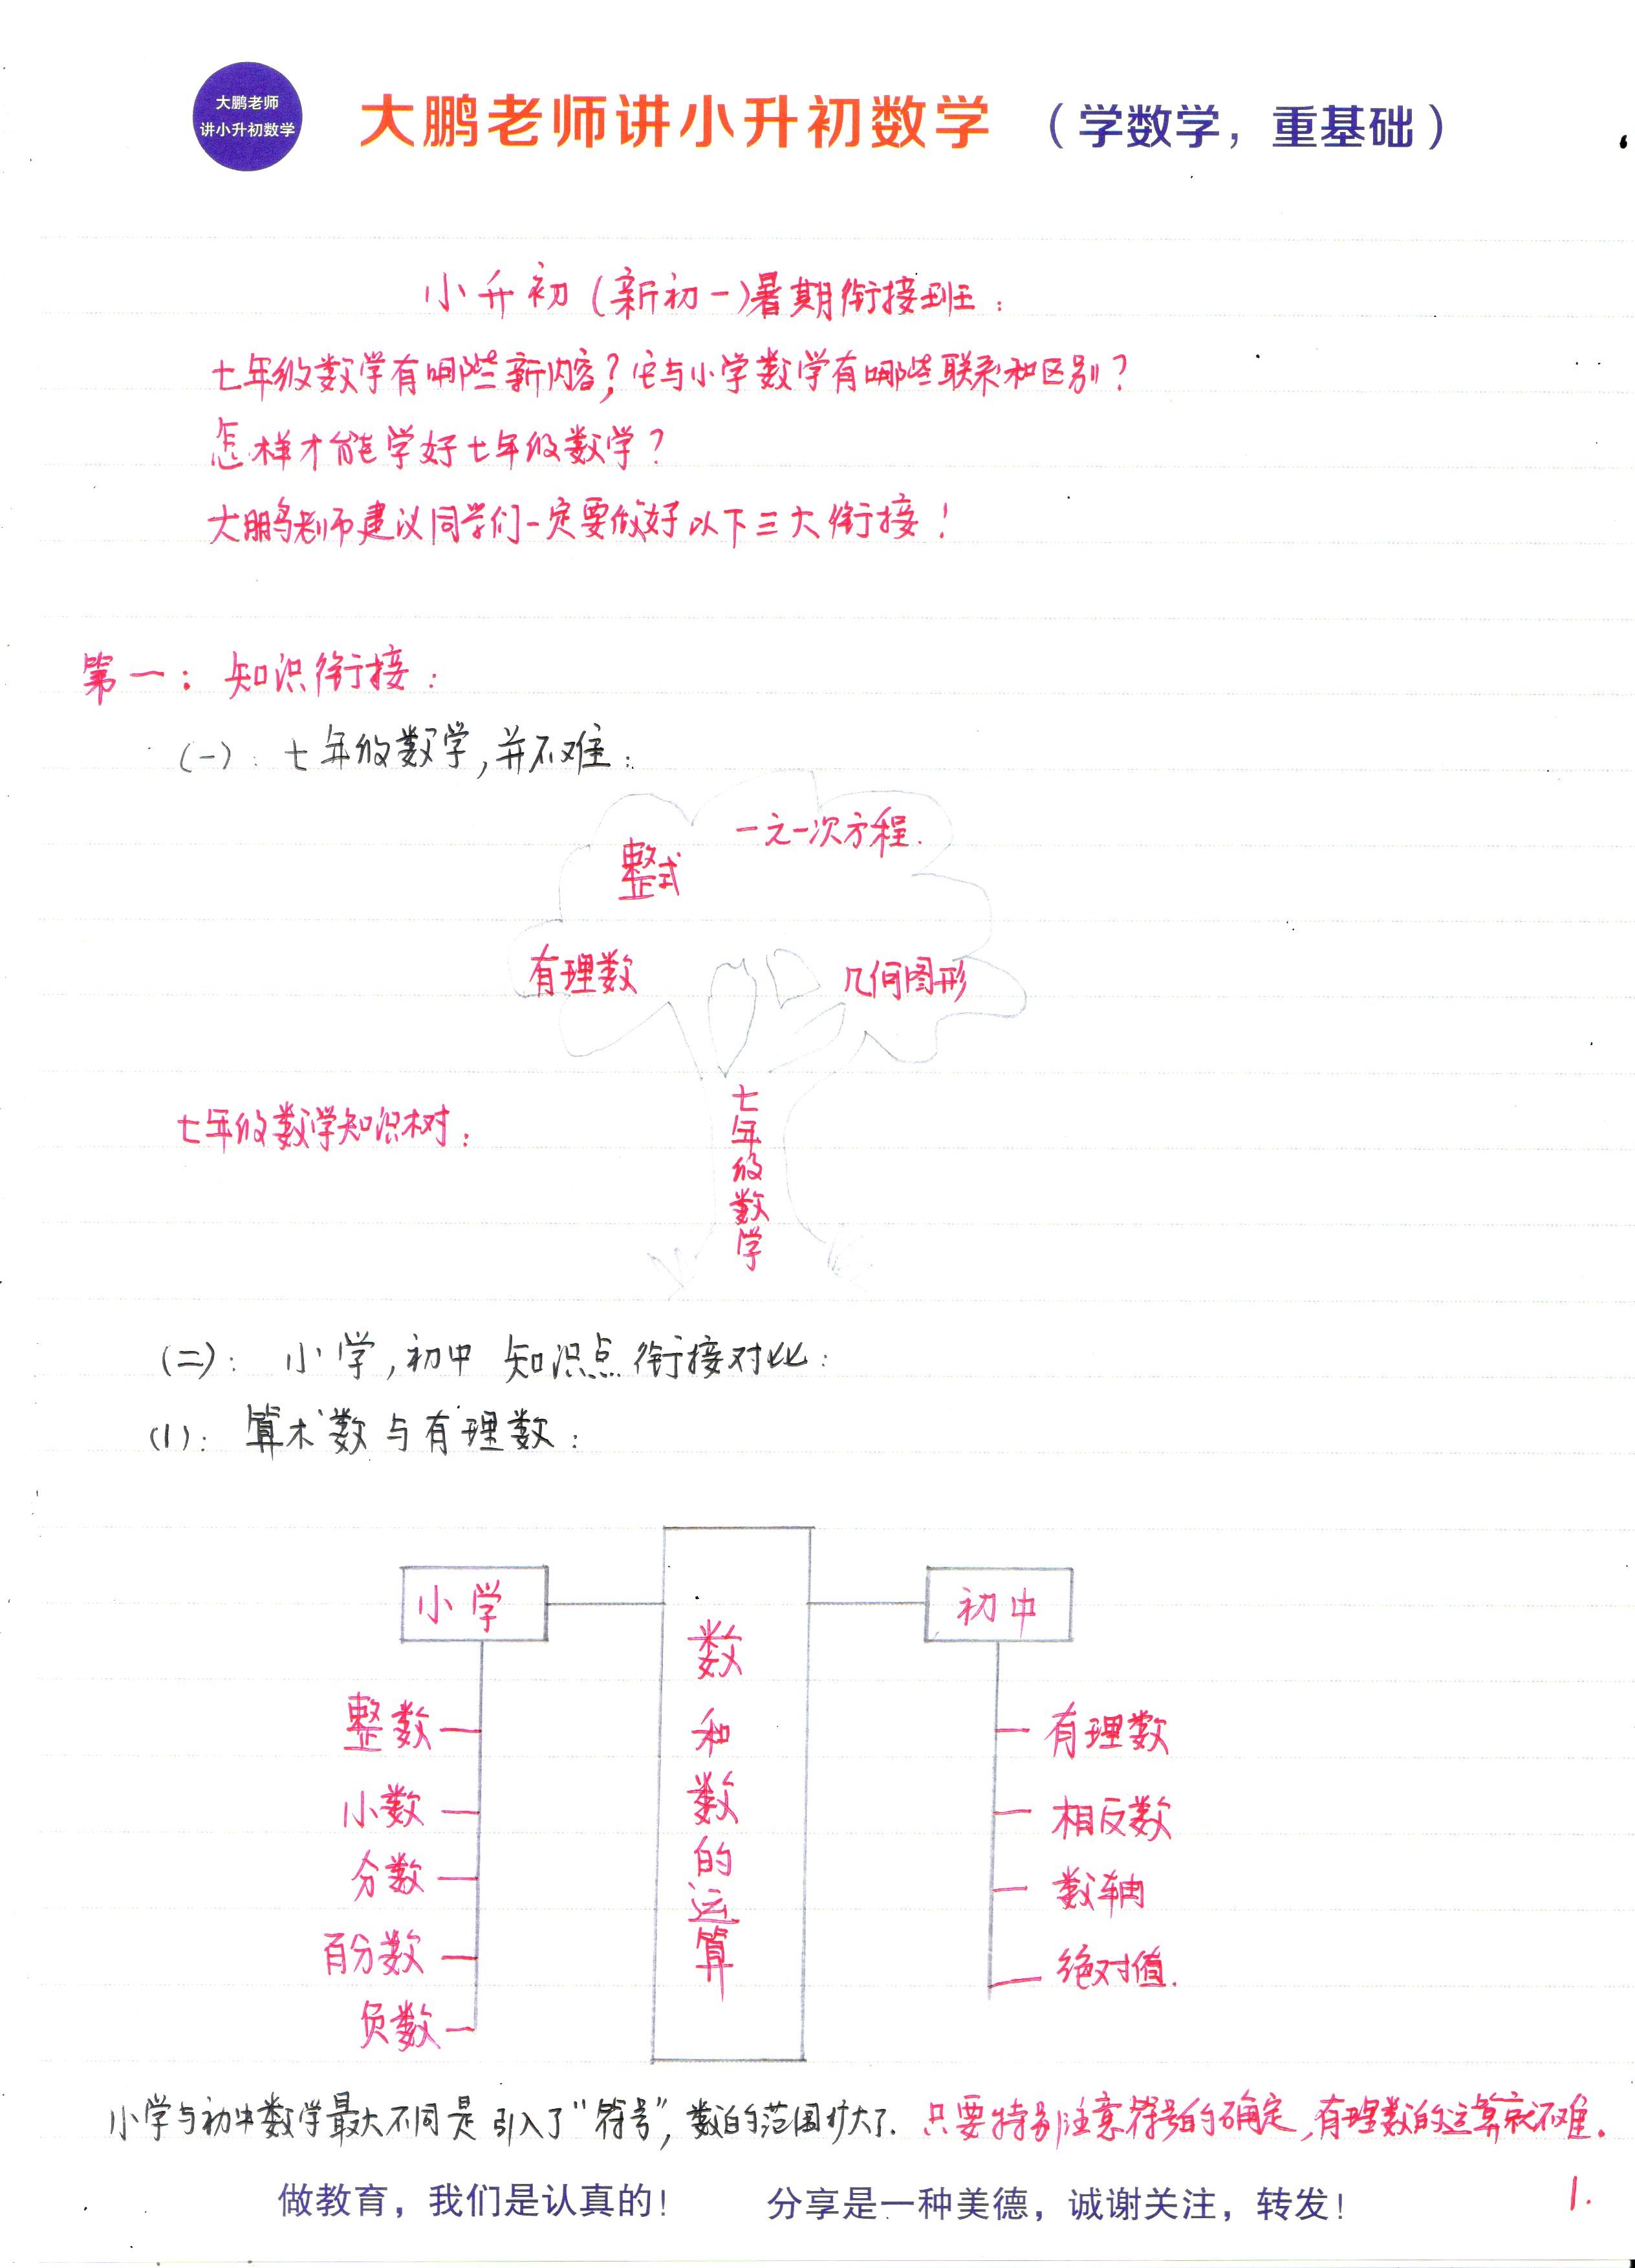 大鹏老师
讲小升初数学
大鹏老师讲小升初数学 （学数学，重基础）
小升初(新初一)暑期衔接班：
七年级数学有哪些新内容？它与小学数学有哪些联系和区别？
怎样才能学好七年级数学？
大鹏老师建议同学们一定要做好以下三大衔接！
第一：知识衔接：
(一)：七年级数学，并不难：
一元一次方程.
整式
有理数
几何图形
七年级数学
七年级数学知识树：
(二)：小学，初中 知识点衔接对比：
(1)：算术数与有理数：
小学
数和数的运算
初中
整数
小数
分数
百分数
负数
有理数
相反数
数轴
绝对值.
小学与初中数学最大不同是引入了“符号”，数的范围扩大了.只要特别注意符号的确定，有理数的运算就不难.
做教育，我们是认真的！ 分享是一种美德，诚谢关注，转发！
1.